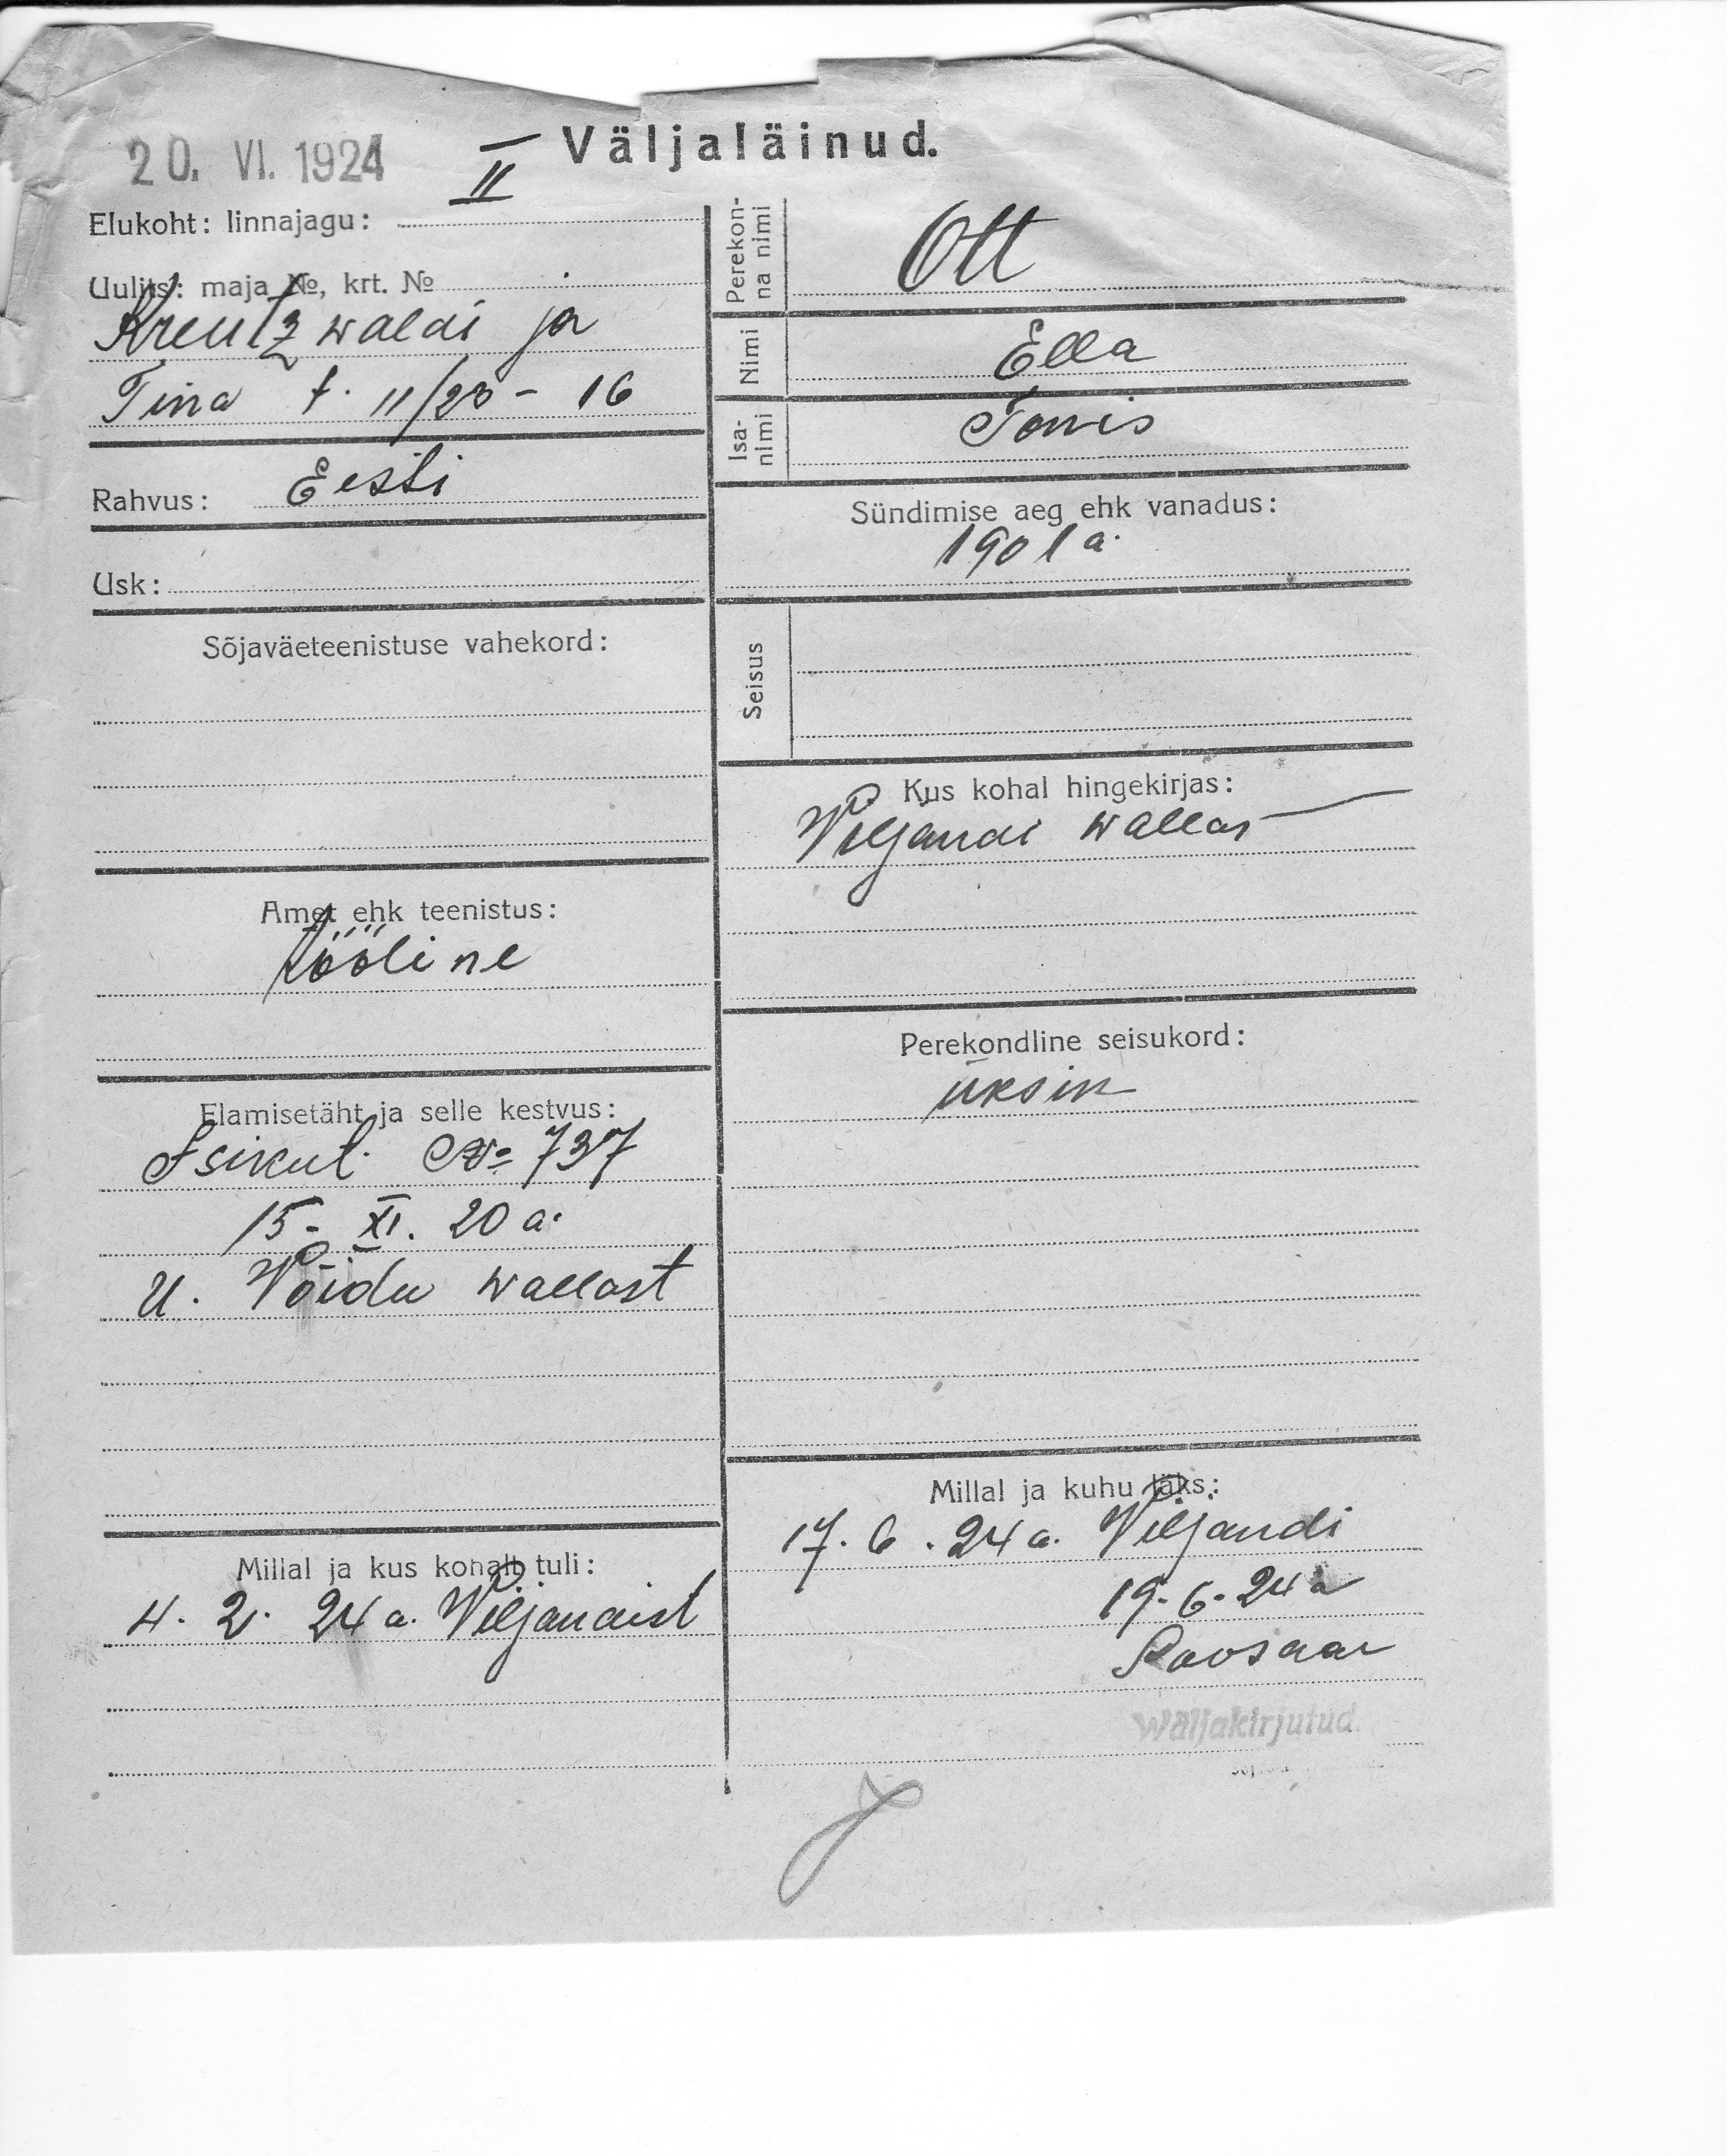 20. VI. 1924
Väljaläinud.
Elukoht: linnajagu: II
Uulits: maja №, krt. №
Kreutzwaldi ja
Tina t. 11/23 - 16
Rahvus: Eesti
Usk:
Sõjaväeteenistuse vahekord:
Amet ehk teenistus:
tööline
Elamisetäht ja selle kestvus:
Isikut. № 737
15. XI. 20 a.
U. Võidu wallast
Millal ja kus kohalt tuli:
4. 2. 24 a. Viljandist
Perekon-
na nimi
Ott
Nimi
Ella
Isa-
nimi
Tõnis
Sündimise aeg ehk vanadus:
1901 a.
Seisus
Kus kohal hingekirjas:
Viljandi wallas
Perekondline seisukord:
üksik
Millal ja kuhu läks:
17. 6. 24 a. Viljandi
19. 6. 24 a
Roosaar
Wäljakirjutud.